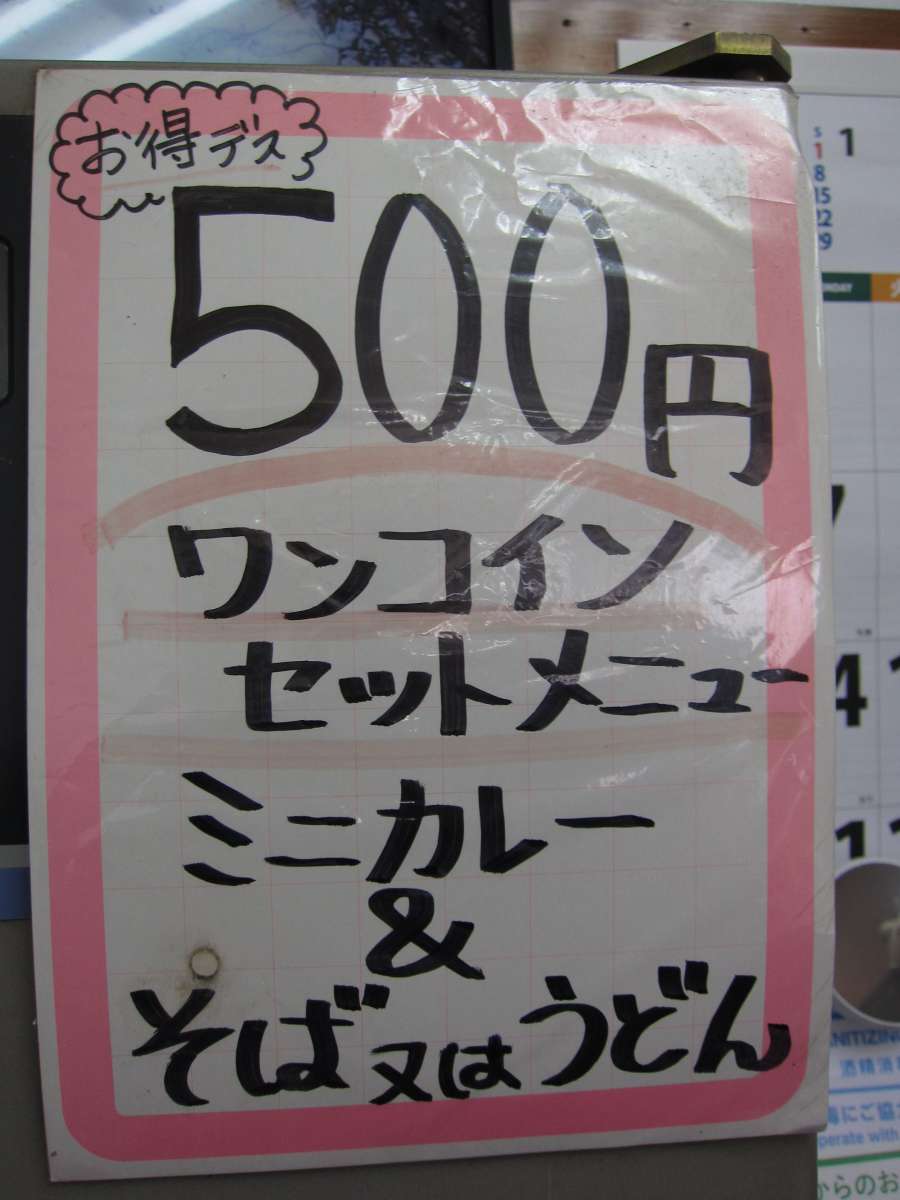 お得デス
500円
ワンコイン
セットメニュー
ミニカレー
&
そば又はうどん
S
1
8
15
22
1
4
酒精消
perate with
からのお